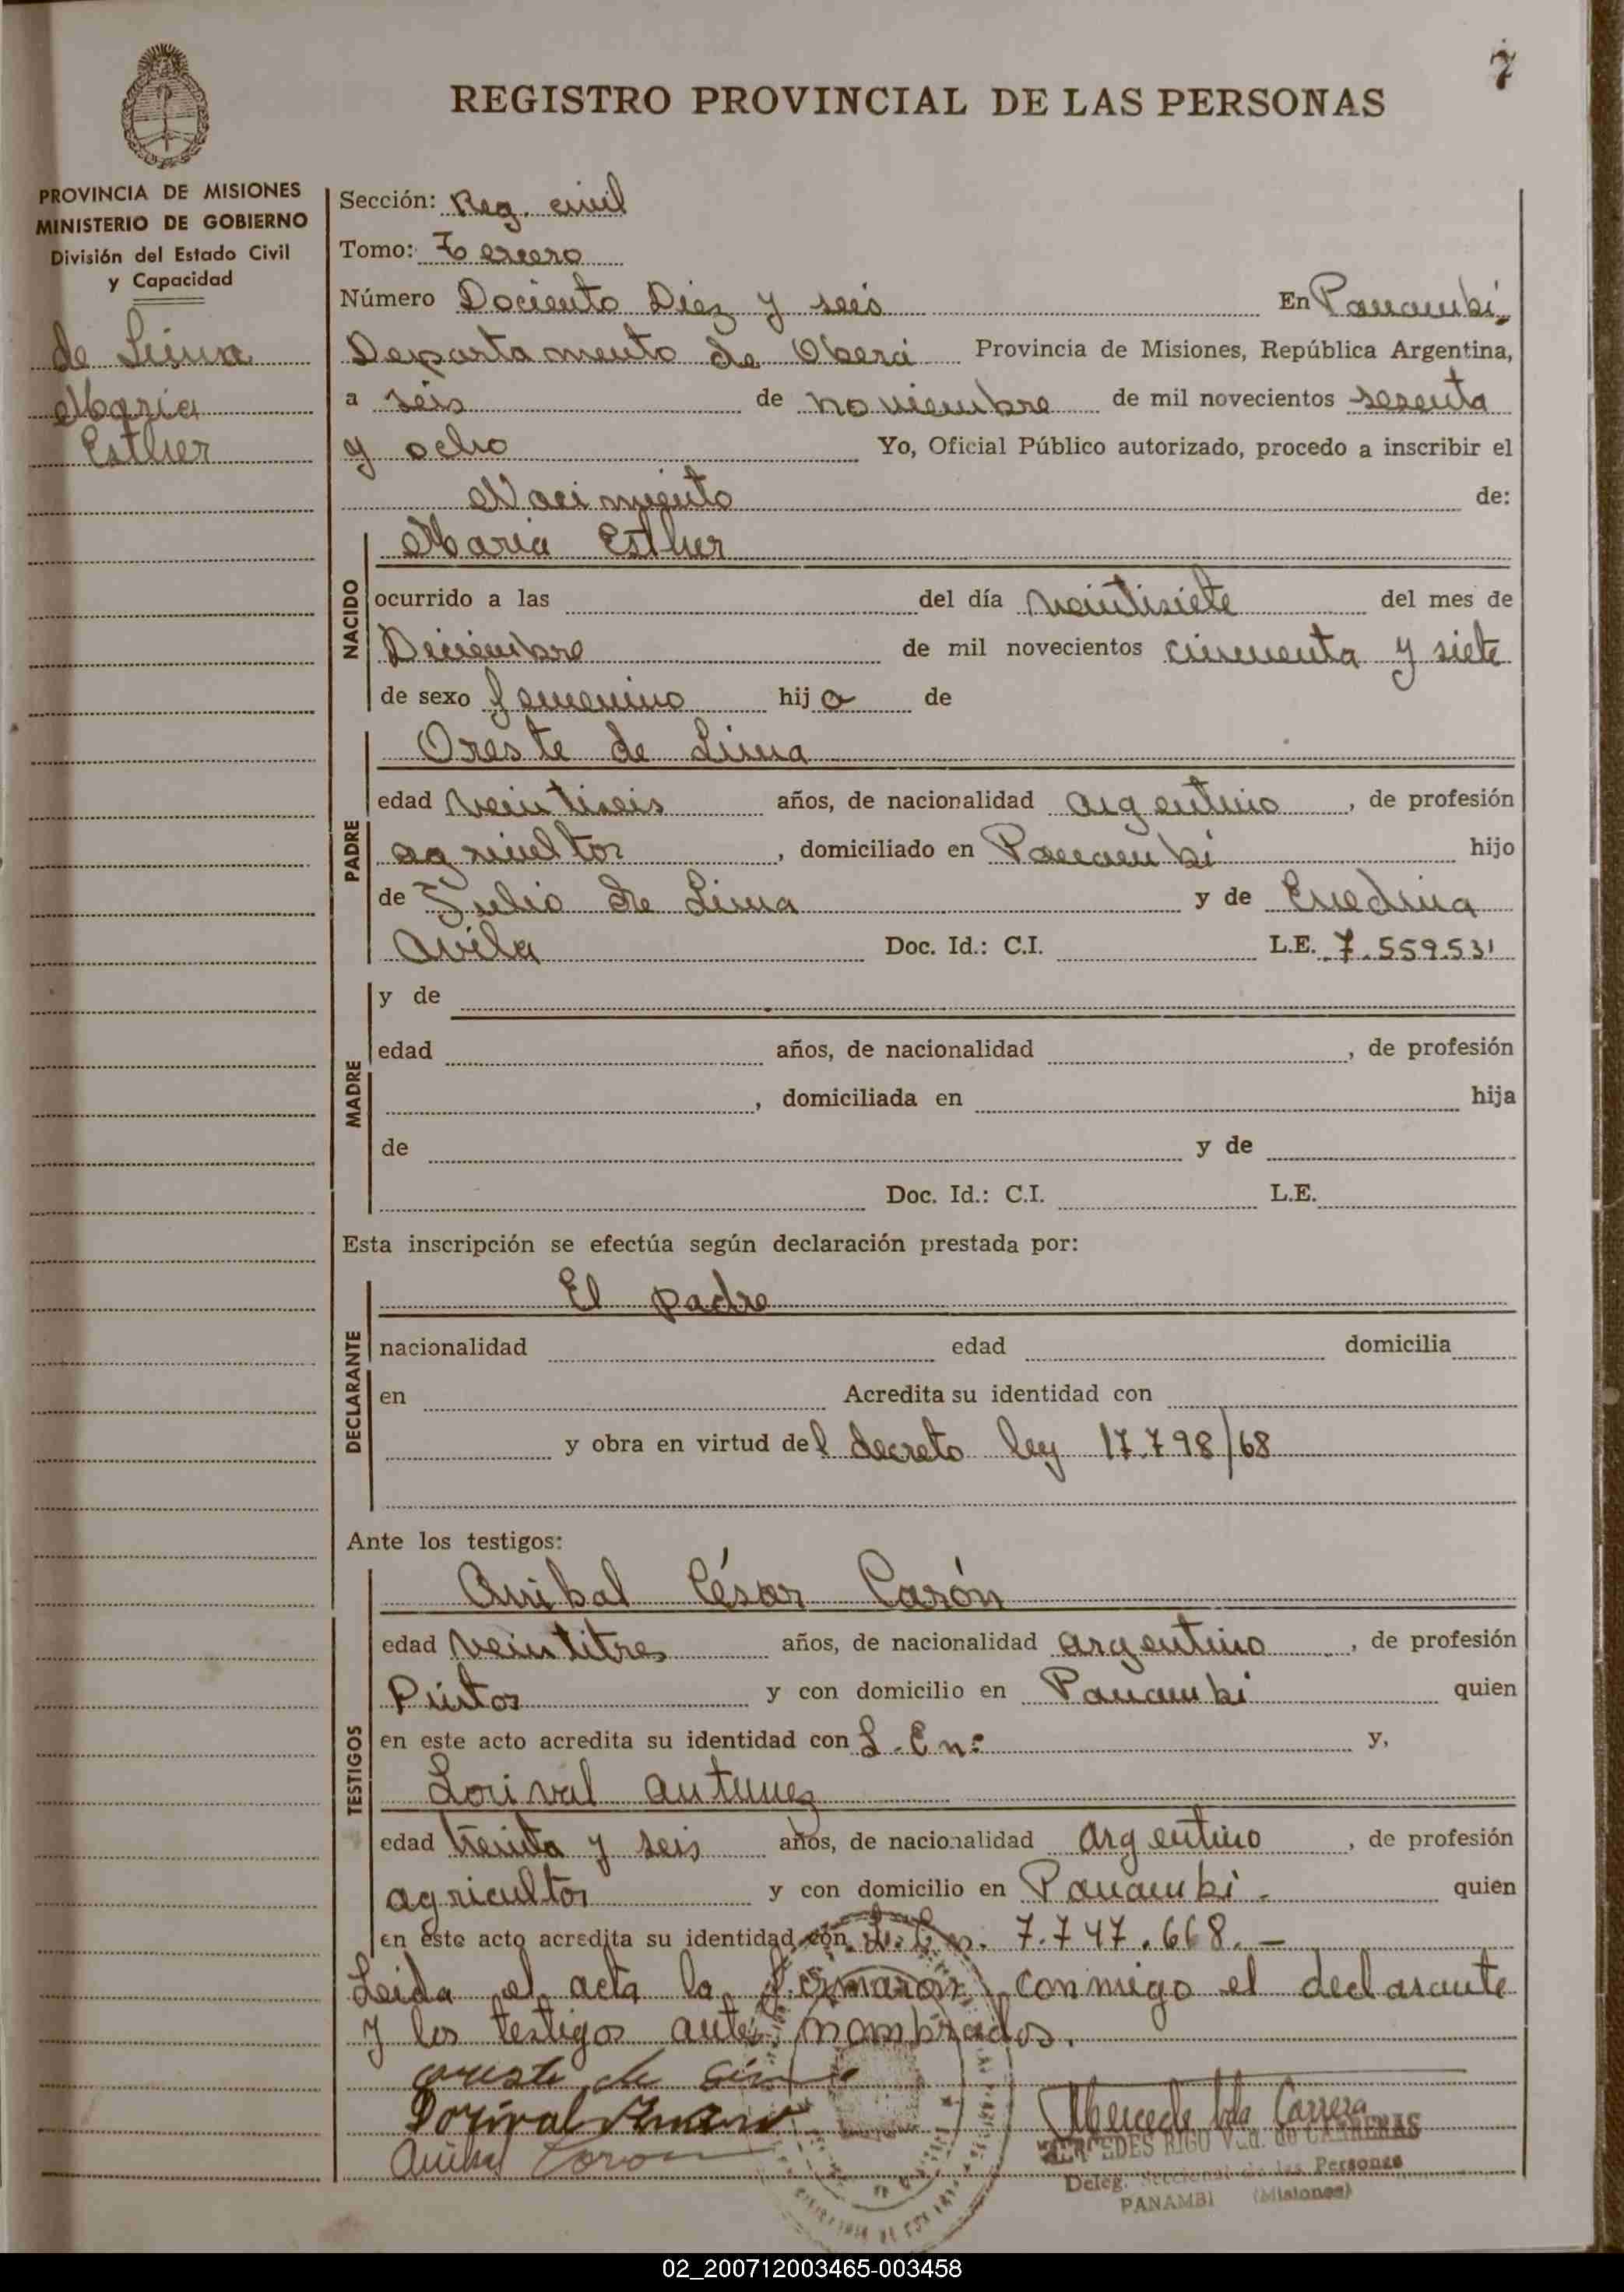 7
REGISTRO PROVINCIAL DE LAS PERSONAS
PROVINCIA DE MISIONES
MINISTERIO DE GOBIERNO
División del Estado Civil
y Capacidad
de Lima
Maria
Esther
Sección: Reg. civil
Tomo: Tercero
Número Dociento Diez y seis En Panambí,
Departamento de Oberá Provincia de Misiones, República Argentina,
a seis de noviembre de mil novecientos sesenta
y ocho Yo, Oficial Público autorizado, procedo a inscribir el
Nacimiento de:
NACIDO
Maria Esther
ocurrido a las del día veintisiete del mes de
Diciembre de mil novecientos cincuenta y siete
de sexo femenino hija de
PADRE
Oreste de Lima
edad veintiseis años, de nacionalidad argentino, de profesión
agricultor, domiciliado en Panambí hijo
de Julio De Lima y de Enedina
Avila Doc. Id.: C.I. L.E. 7.559.531
MADRE
y de
edad años, de nacionalidad , de profesión
, domiciliada en hija
de y de
Doc. Id.: C.I. L.E.
Esta inscripción se efectúa según declaración prestada por:
DECLARANTE
El padre
nacionalidad edad domicilia
en Acredita su identidad con
y obra en virtud del decreto ley 17.798/68
Ante los testigos:
TESTIGOS
Anibal César Carón
edad veintitres años, de nacionalidad argentino, de profesión
y con domicilio en Panambi quien
en este acto acredita su identidad con L.E nº y,
Lorival Antunez
edad treinta y seis años, de nacionalidad argentino, de profesión
agricultor y con domicilio en Panambi. quien
en este acto acredita su identidad con L.E n. 7.747.668.—
Leida el acta la firmaron conmigo el declarante
y los testigos antes nombrados.
oreste de
Dorival
Anibal Coron
Mercedes Vda Carrera
MERCEDES RIGO Vda. de CARRERAS
Deleg. Seccional de las Personas
PANAMBI (Misiones)
02_200712003465-003458